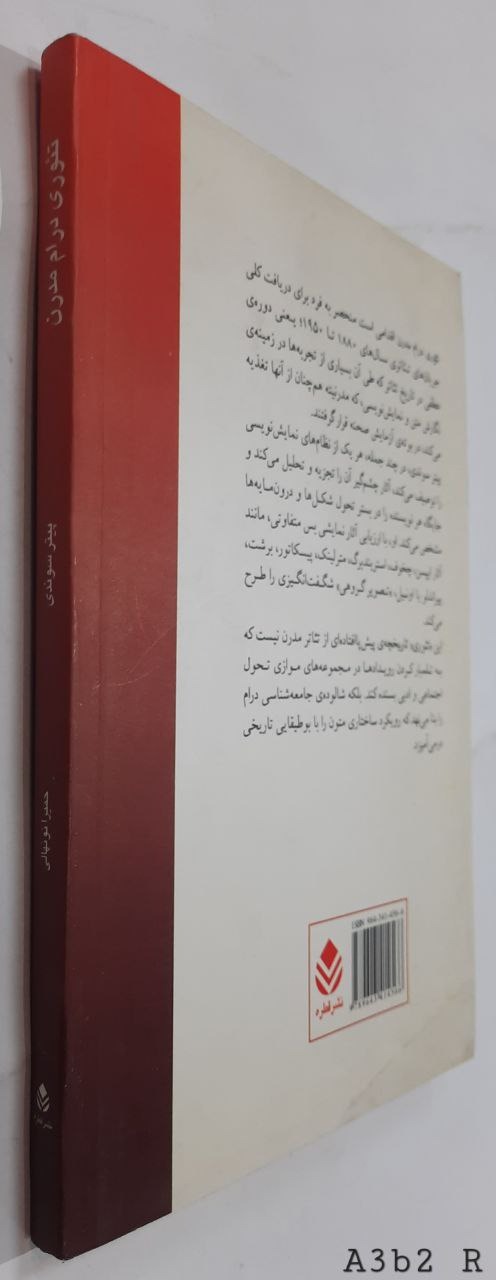 تئوری درام مدرن
پیتر سوندی
حمیرا نونهالی
نشر قطره
تئوری درام مدرن اقدامی است منحصر به فرد برای دریافت کلی
جریان‌های تئاتری سال‌های ۱۸۸۰ تا ۱۹۵۰؛ یعنی دوره‌ی
در تاریخ تئاتر که طی آن بسیاری از تجربه‌ها در زمینه‌ی
نگارش متن و نمایش‌نویسی، که مدرنیته هم‌چنان از آنها تغذیه
می‌کند، در بوته‌ی آزمایش صحنه قرار گرفتند.
پیتر سوندی، در چند جمله، هر یک از نظام‌های نمایش‌نویسی
را توصیف می‌کند، آثار چشم‌گیر آن را تجزیه و تحلیل می‌کند و
جایگاه هر نویسنده را در بستر تحول شکل‌ها و درون‌مایه‌ها
مشخص می‌کند. او، با ارزیابی آثار نمایشی بس متفاوتی، مانند
آثار ایبسن، چخوف، استریندبرگ، مترلینک، پیسکاتور، برشت،
پیراندلو یا اونیل، «تصویر گروهی» شگفت‌انگیزی را طرح
می‌کند.
این «تئوری» تاریخچه‌ی پیش‌پاافتاده‌ای از تئاتر مدرن نیست که
به شمار کردن رویدادها در مجموعه‌های موازی تحول
اجتماعی و ادبی بسنده کند. بلکه شالوده‌ی جامعه‌شناسی درام
را بنا می‌نهد که رویکرد ساختاری متون را با بوطیقایی تاریخی
درمی‌آمیزد.
نشر قطره
ISBN 964-341-436-6
A3b2 R